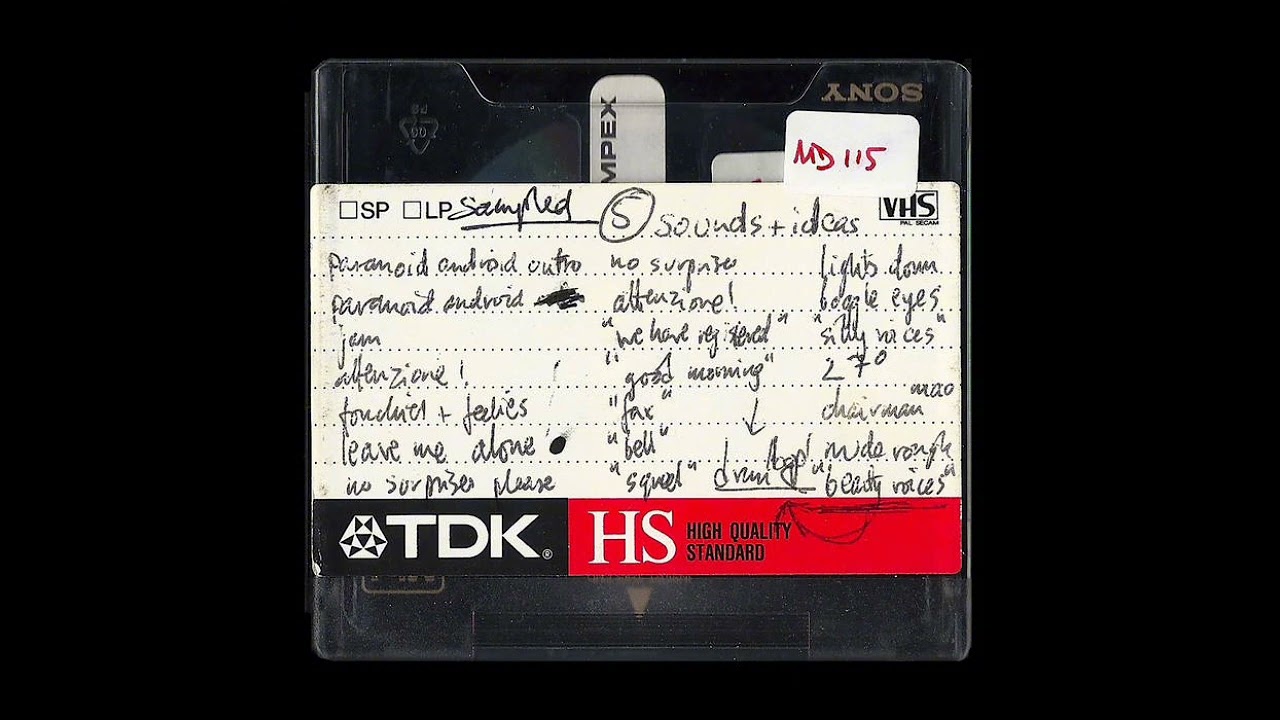 SONY
MPEX
MD 115
SP LP sampled 5 sounds + ideas VHS
PAL SECAM
paranoid android outro
paranoid android
jam
attenzione!
feelies
leave me alone
no surprises please
no surprises
attenzione!
"we have reg
"good morning"
"fax"
"bell"
"squeel" drum loop!
lights down
boggle eyes
"silly voices"
27°
chairman mao
nude rough
"beatty voices"
TDK®
HS HIGH QUALITY
STANDARD